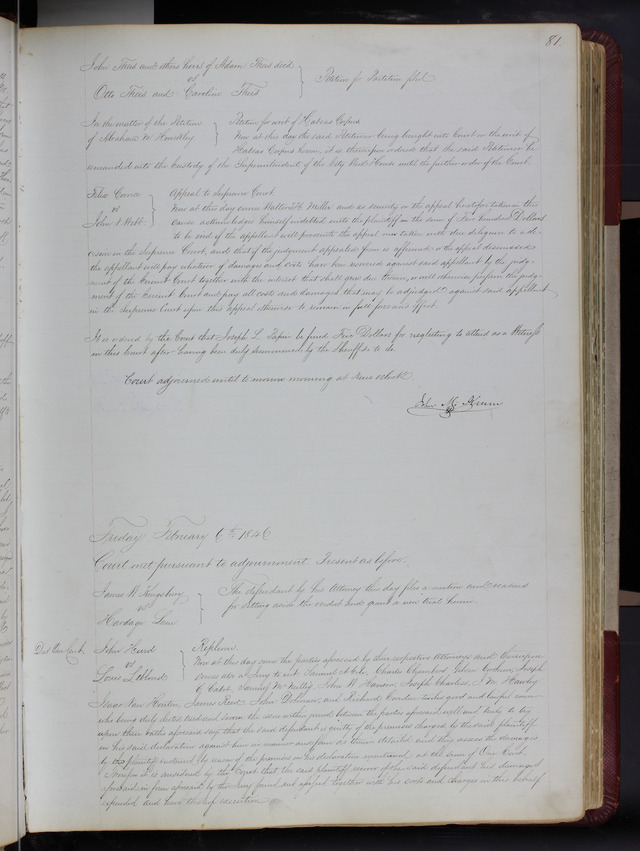 81.
John Thees and others heirs of Adam Thees decd
vs
Otto Thees and Caroline Thees
Petition for Partition filed
In the matter of the Petition
of Abraham W. Hinckley
Petition for writ of Habeas Corpus
Now at this day the said Petitioner being brought into Court on the writ of
Habeas Corpus herein, it is thereupon ordered that the said Petitioner be
remanded into the custody of the Superintendent of the City Work House until the further order of the Court.
vs
John Webb
Appeal to Supreme Court
Now at this day comes H. Miller and as security in the appeal heretofore taken in this
cause acknowledges himself indebted unto the plaintiff in the sum of hundred Dollars
to be void if the appellant will prosecute the appeal now taken with due diligence to a de-
cision in the Supreme Court, and that if the judgment appealed from is affirmed or the appeal dismissed
the appellant will pay whatever of damages and costs have been recovered against said appellant by the judg-
ment of the Circuit Court together with the interest that shall grow due thereon, & will otherwise perform the judg-
ment of the Circuit Court and pay all costs and damages that may be adjudged against said appellant
in the Supreme Court upon this appeal otherwise to remain in full force and effect.
It is ordered by the Court that Joseph L. be fined Five Dollars for neglecting to attend as a Witness
in this Court after having been duly summoned by the Sheriff so to do.
Court adjourned until to morrow morning at nine oclock
John M. Krum
Friday February 6th 1846
Court met pursuant to adjournment. Present as before.
James W. Kingsbury
vs
Hardage Lane
The defendant by his Attorney this day files a motion and reasons
for setting aside the verdict and grant a new trial herein.
John Hurd
vs
Louis Leblond
Replevin.
Now at this day come the parties aforesaid by their respective Attorneys and thereupon
comes also a Jury to wit: Samuel A. Cole, Charles Chambers, Gideon Gorham, Joseph
G. Cabot, W. Mills, John W. Hanson, Joseph Charless, S. M. Hawley
Isaac Van Houten, James Reed, John Dolman, and Richard twelve good and lawful men
who being duly elected tried and sworn the issue within joined between the parties aforesaid well and truly to try
upon their oaths aforesaid say that the said defendant is guilty of the premises charged by the said plaintiff
in his said declaration against him in manner and form as therein detailed and they assess the damages
by the plaintiff sustained by reason of the premises in his declaration mentioned at the sum of One Cent
Therefore it is considered by the Court that the said plaintiff recover of the said defendant his damages
aforesaid in form aforesaid by the Jury found and assessed together with his costs and charges in this behalf
expended and have thereof execution